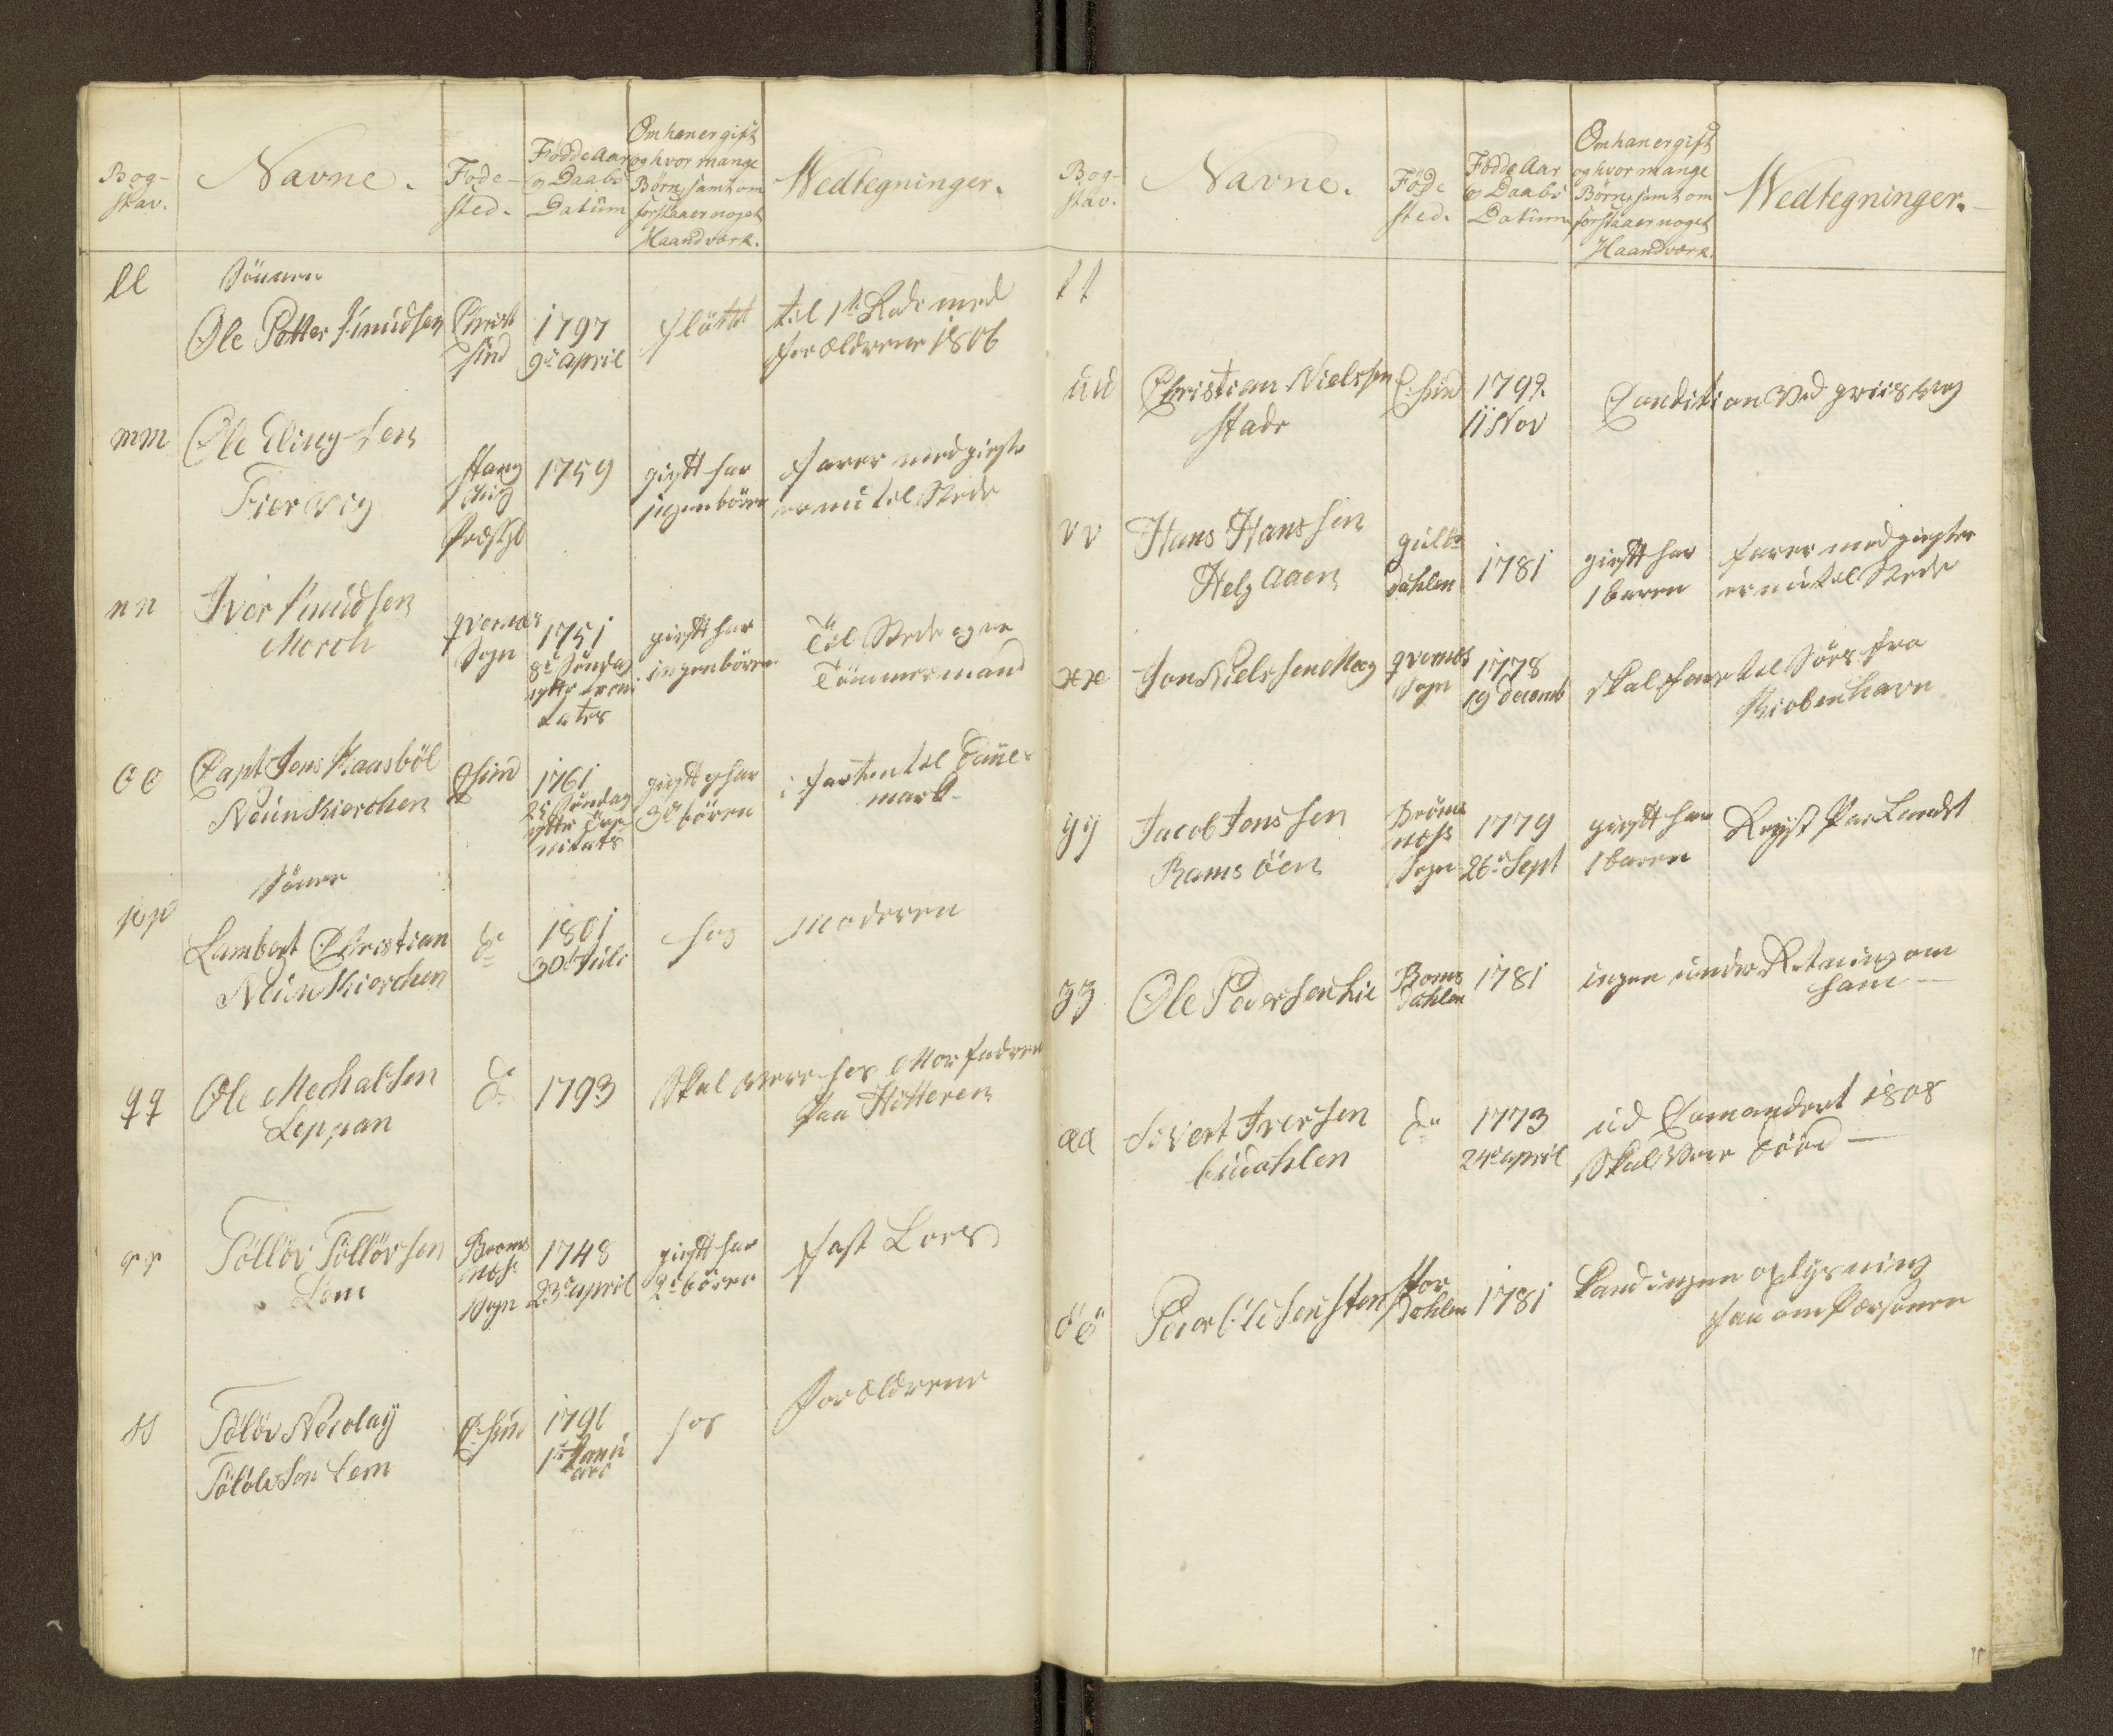 Bog-
stav.
Navne.
Föde-
sted.
Födde Aar
og Daabs
Datum
Om han er gift
og hvor mange
Börn, samt om
forstaaer noget
Haandværk.
Wedtegninger.
ll
Sönnen
Ole Petter Knudsen
Christ
sund
1797
9de april
flöttet
til 1te Rode med
forældrene 1806
mm
Ole Elling-sen
Fier vig
Stang
vig
Præstgl
1759
gieftt har
ingen börn
farer med giegte
er nu til Stede
nn
Iver Knudsen
Morch
qvernes
Sogn
1751
8de Söndag
efter treni
tates
gieftt har
ingen börn
Til Stede og er
Tömmermand
oo
Capt Jens Kaasböl
Neün Kierchen
Chsund
1761
25de Söndag
efter tre
nitats
gieftt og har
3de bören
i farten til Dane-
mark
pp
Söner
Lambert Christian
Neün Kierchen
do
1801
30de Juli
hos
Moderen
qq
Ole Mechalsen
Leppan
do
1793
Skal være hos Morfadren
paa Hitteren
rr
Töllöv Töllövsen
Lem
Brems
næss
Sogn
1748
23de april
gieftt har
2de bören
fast Loes
ss
Tölöv Nicolaÿ
Tölövsen Lem
Chsund
1790
1te Janu
ari
hos
forældrene
Bog-
stav.
Navne.
Föde
sted.
Födde Aar
og Daabs
Datum
Om han er gift
og hvor mange
Börn, samt om
forstaaer noget
Haandværk.
Wedtegninger.
tt
uu
Christian Nielssen
Stade
Chsund
1799.
11 Nov
Condition ved priisvog
vv
Hans Hanssen
Helg Aaen
gülb
dahlen
1781
gieftt har
1 baren
farer med giegter
er nu til Stede
xx
Jon Nielssen Mag
qvernes
Sogn
1778
19 decemb
skal fare til Söes fra
Kiobenhavn
yy
Jacob Jenssen
Ramsöen
Bröms
næss
Sogn
1779
26de Sept
gieftt har
1 baren
Reyst paa Landet
zz
Ole Pedersen Lie
Roms
dahlen
1781
ingen underRetning om
ham
ææ
Sivert Iversen
budahlen
do
1773
24de april
ud Comandert 1808
Skal Være Dööd
öö
Peder Olesen Sten
Stor
Dahlen
1781
kand ingen oplysning
faa om Personen